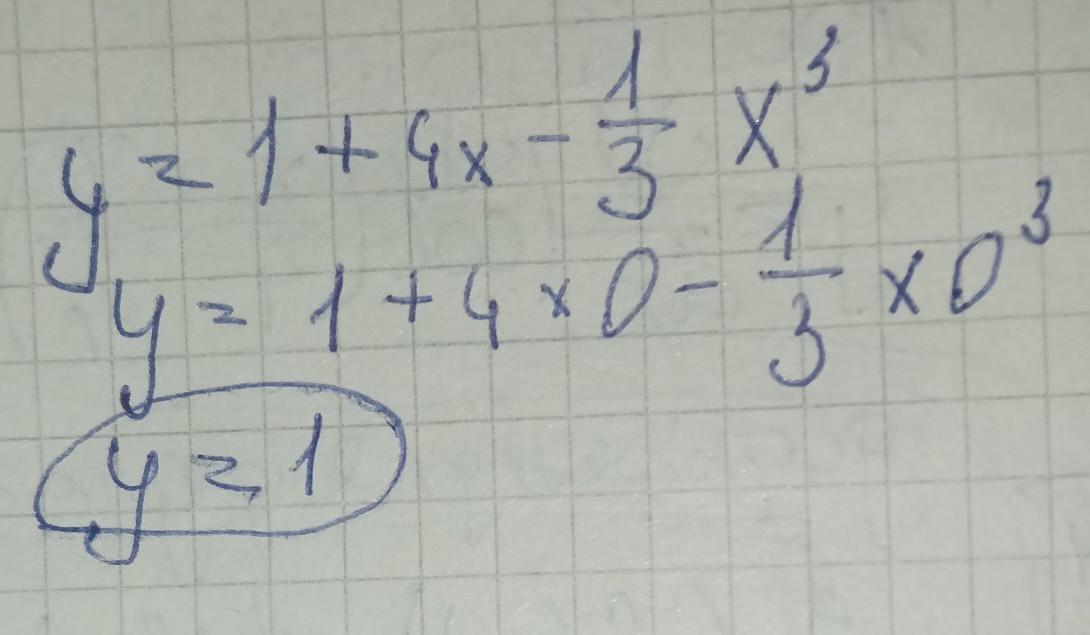 y = 1 + 4x - 1/3 x³
y = 1 + 4 x 0 - 1/3 x 0³
y = 1